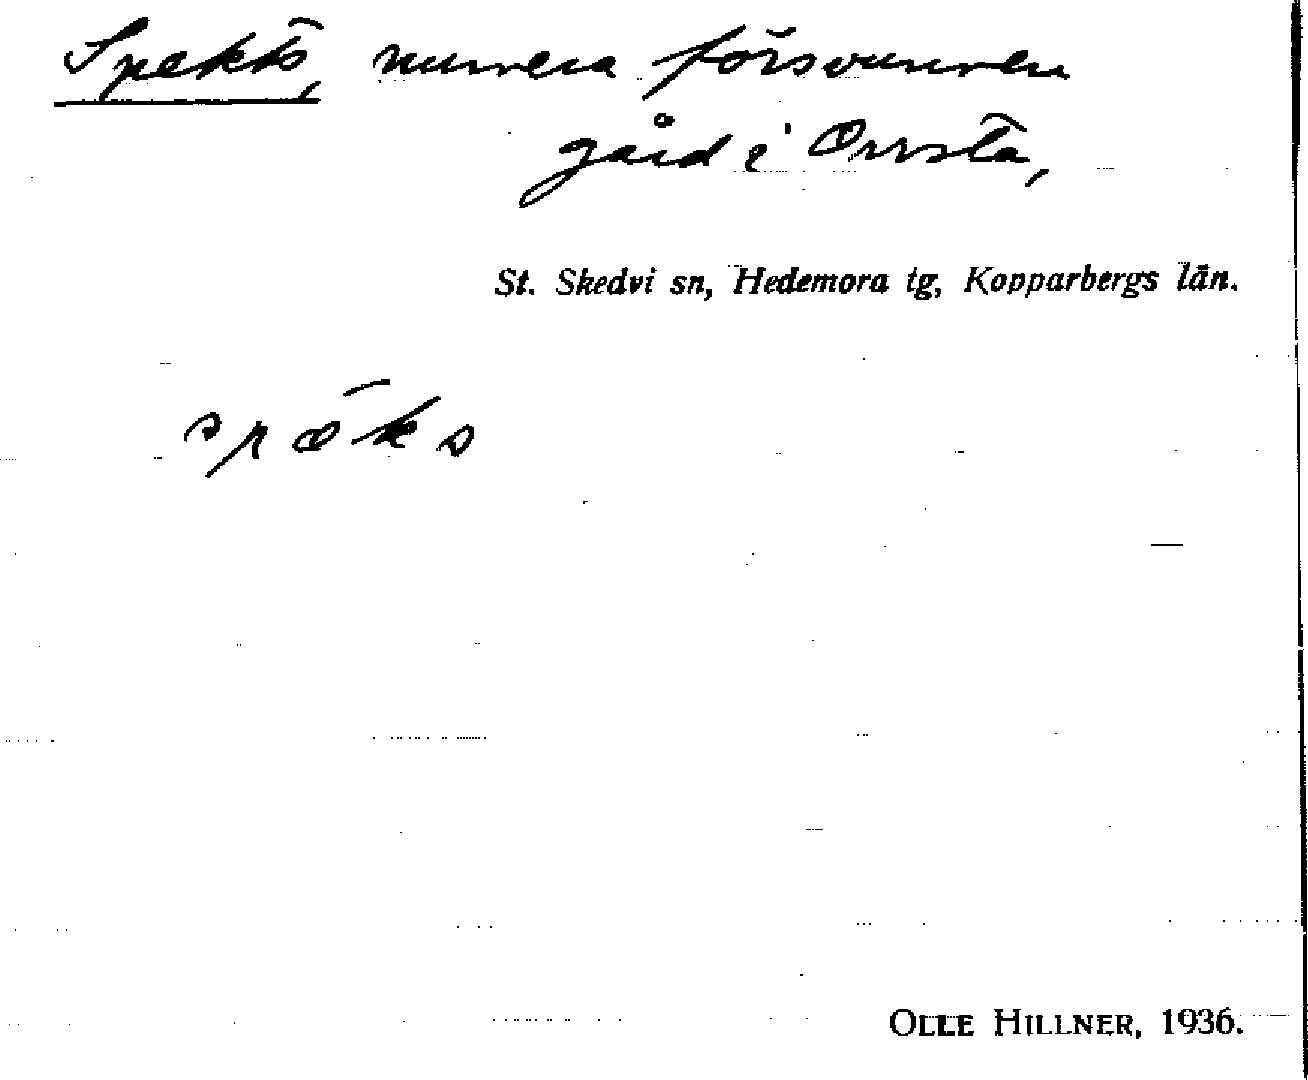 Spekts, numera försvunnen
gård i Orrsta,
St. Skedvi sn, Hedemora tg, Kopparbergs län.
späks
OLLE HILLNER, 1936.